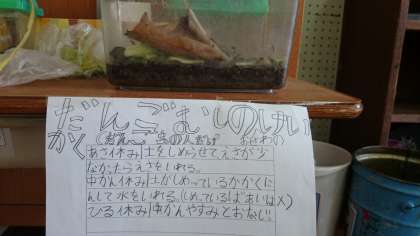 だんごむしのけい
かく
あさ休み 土をしめらせて、えさが少
なかったらえさをいれる。
中かん休み 土がしめっているかかくに
んして水をいれる。(しめっているばあいはX)
ひる休み 中かんやすみとおなじ!!